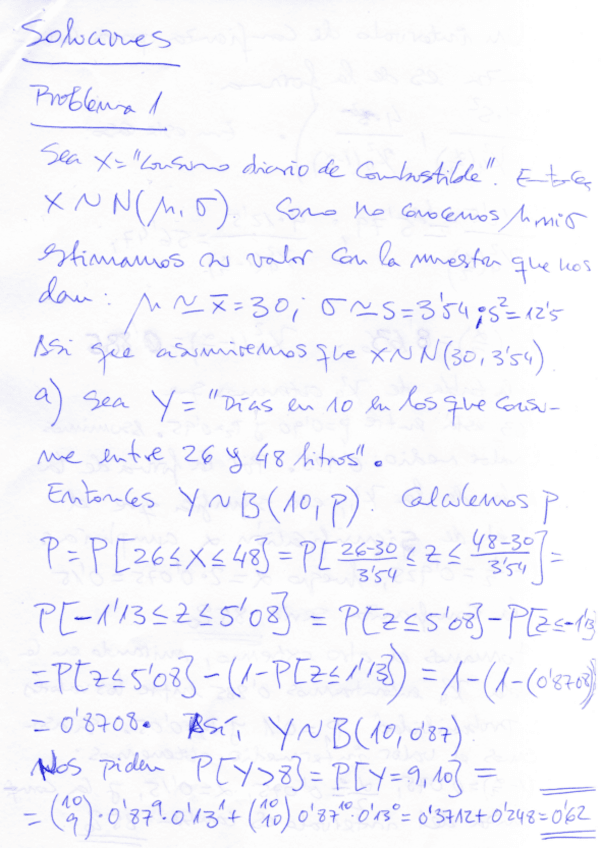 Soluciones
Problema 1
Sea X="Consumo diario de Combustible". Entonces
X ~ N(μ, σ). Como no conocemos μ ni σ
estimamos su valor con la muestra que nos
dan: μ ≃ x̄ = 30; σ ≃ s = 3'54; s²=12'5
Así que asumiremos que X~N(30, 3'54)
a) Sea Y = "Días en 10 en los que consu-
me entre 26 y 48 litros".
Entonces Y~B(10, p). Calculemos p
P = P[26≤X≤48] = P[(26-30)/3'54 ≤ z ≤ (48-30)/3'54] =
P[-1'13≤z≤5'08] = P[z≤5'08] - P[z≤-1'13]
= P[z≤5'08] - (1-P[z≤1'13]) = 1-(1-(0'8708))
= 0'8708. Así, Y~B(10, 0'87)
Nos piden P[Y>8] = P[Y=9,10] =
= (10 9)·0'87⁹·0'13¹ + (10 10) 0'87¹⁰·0'13⁰ = 0'3712+0'248=0'62